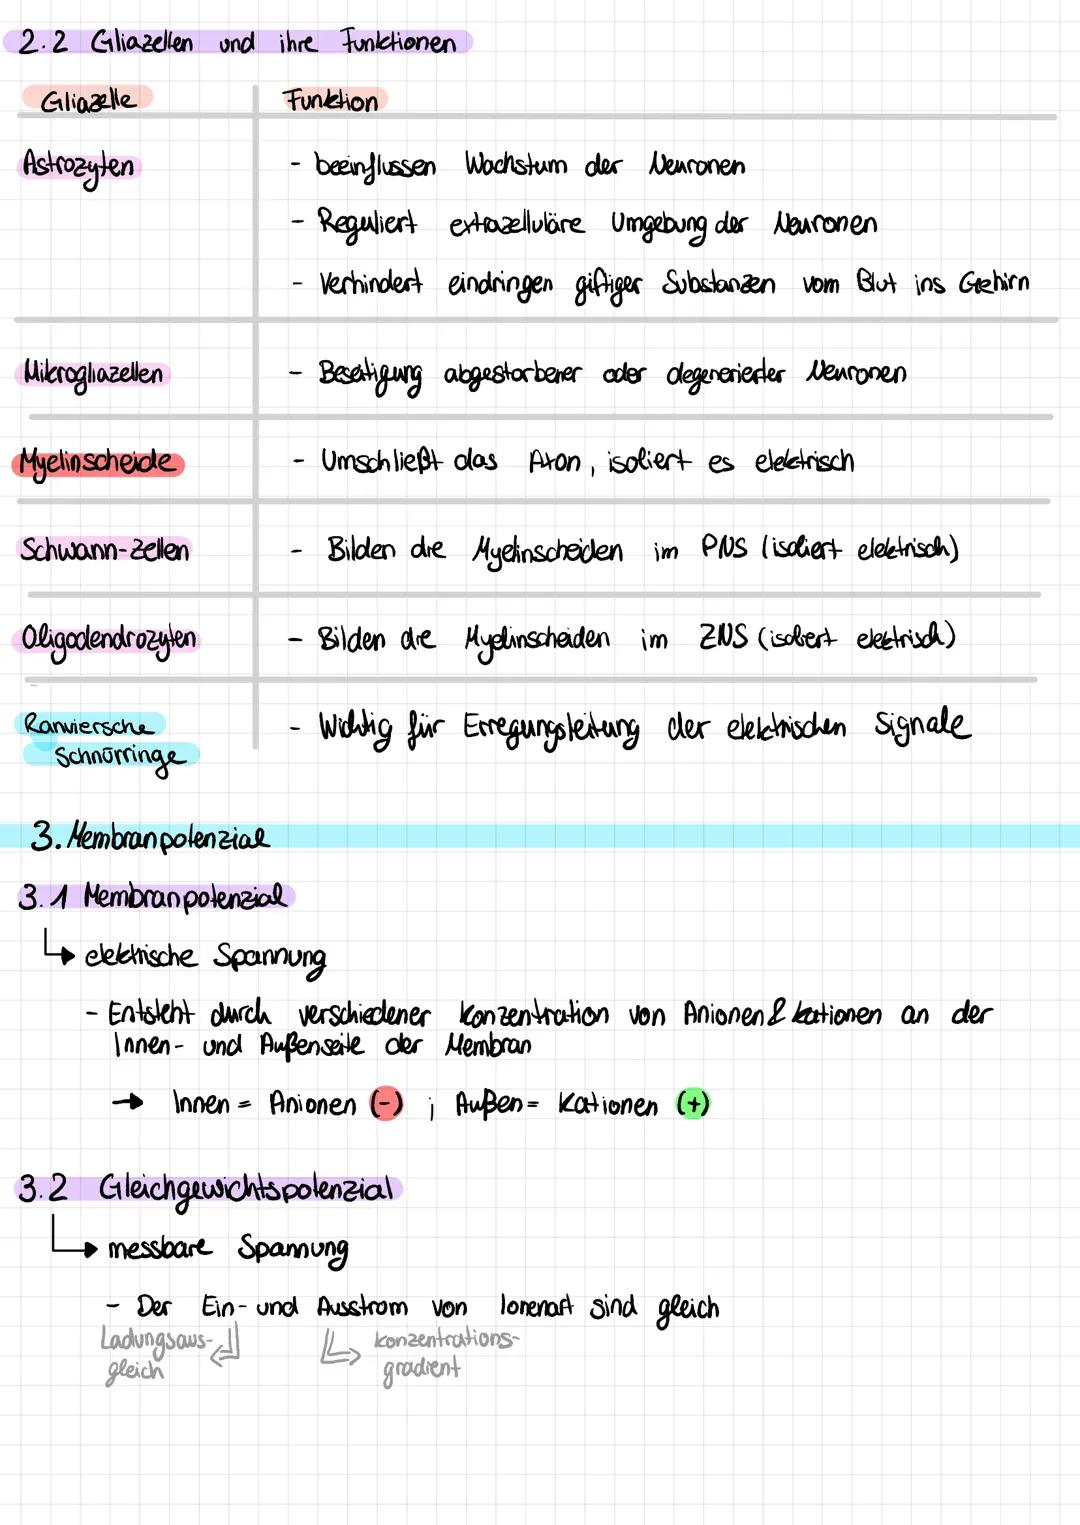 2.2 Gliazellen und ihre Funktionen
Gliazelle Funktion
Astrozyten - beeinflussen Wachstum der Neuronen
- Reguliert extrazelluläre Umgebung der Neuronen
- Verhindert eindringen giftiger Substanzen vom Blut ins Gehirn
Mikrogliazellen - Beseitigung abgestorbener oder degenerierter Neuronen
Myelinscheide - Umschließt das Axon, isoliert es elektrisch
Schwann-Zellen - Bilden die Myelinscheiden im PNS (isoliert elektrisch)
Oligodendrozyten - Bilden die Myelinscheiden im ZNS (isoliert elektrisch)
Ranviersche - Wichtig für Erregungsleitung der elektrischen Signale
Schnürringe
3. Membranpotenzial
3.1 Membranpotenzial
↳ elektrische Spannung
- Entsteht durch verschiedener Konzentration von Anionen & kationen an der
Innen- und Außenseite der Membran
→ Innen = Anionen (-) ; Außen = Kationen (+)
3.2 Gleichgewichtspotenzial
↳ messbare Spannung
- Der Ein- und Ausstrom von Ionenart sind gleich
Ladungsaus- konzentrations-
gleich gradient